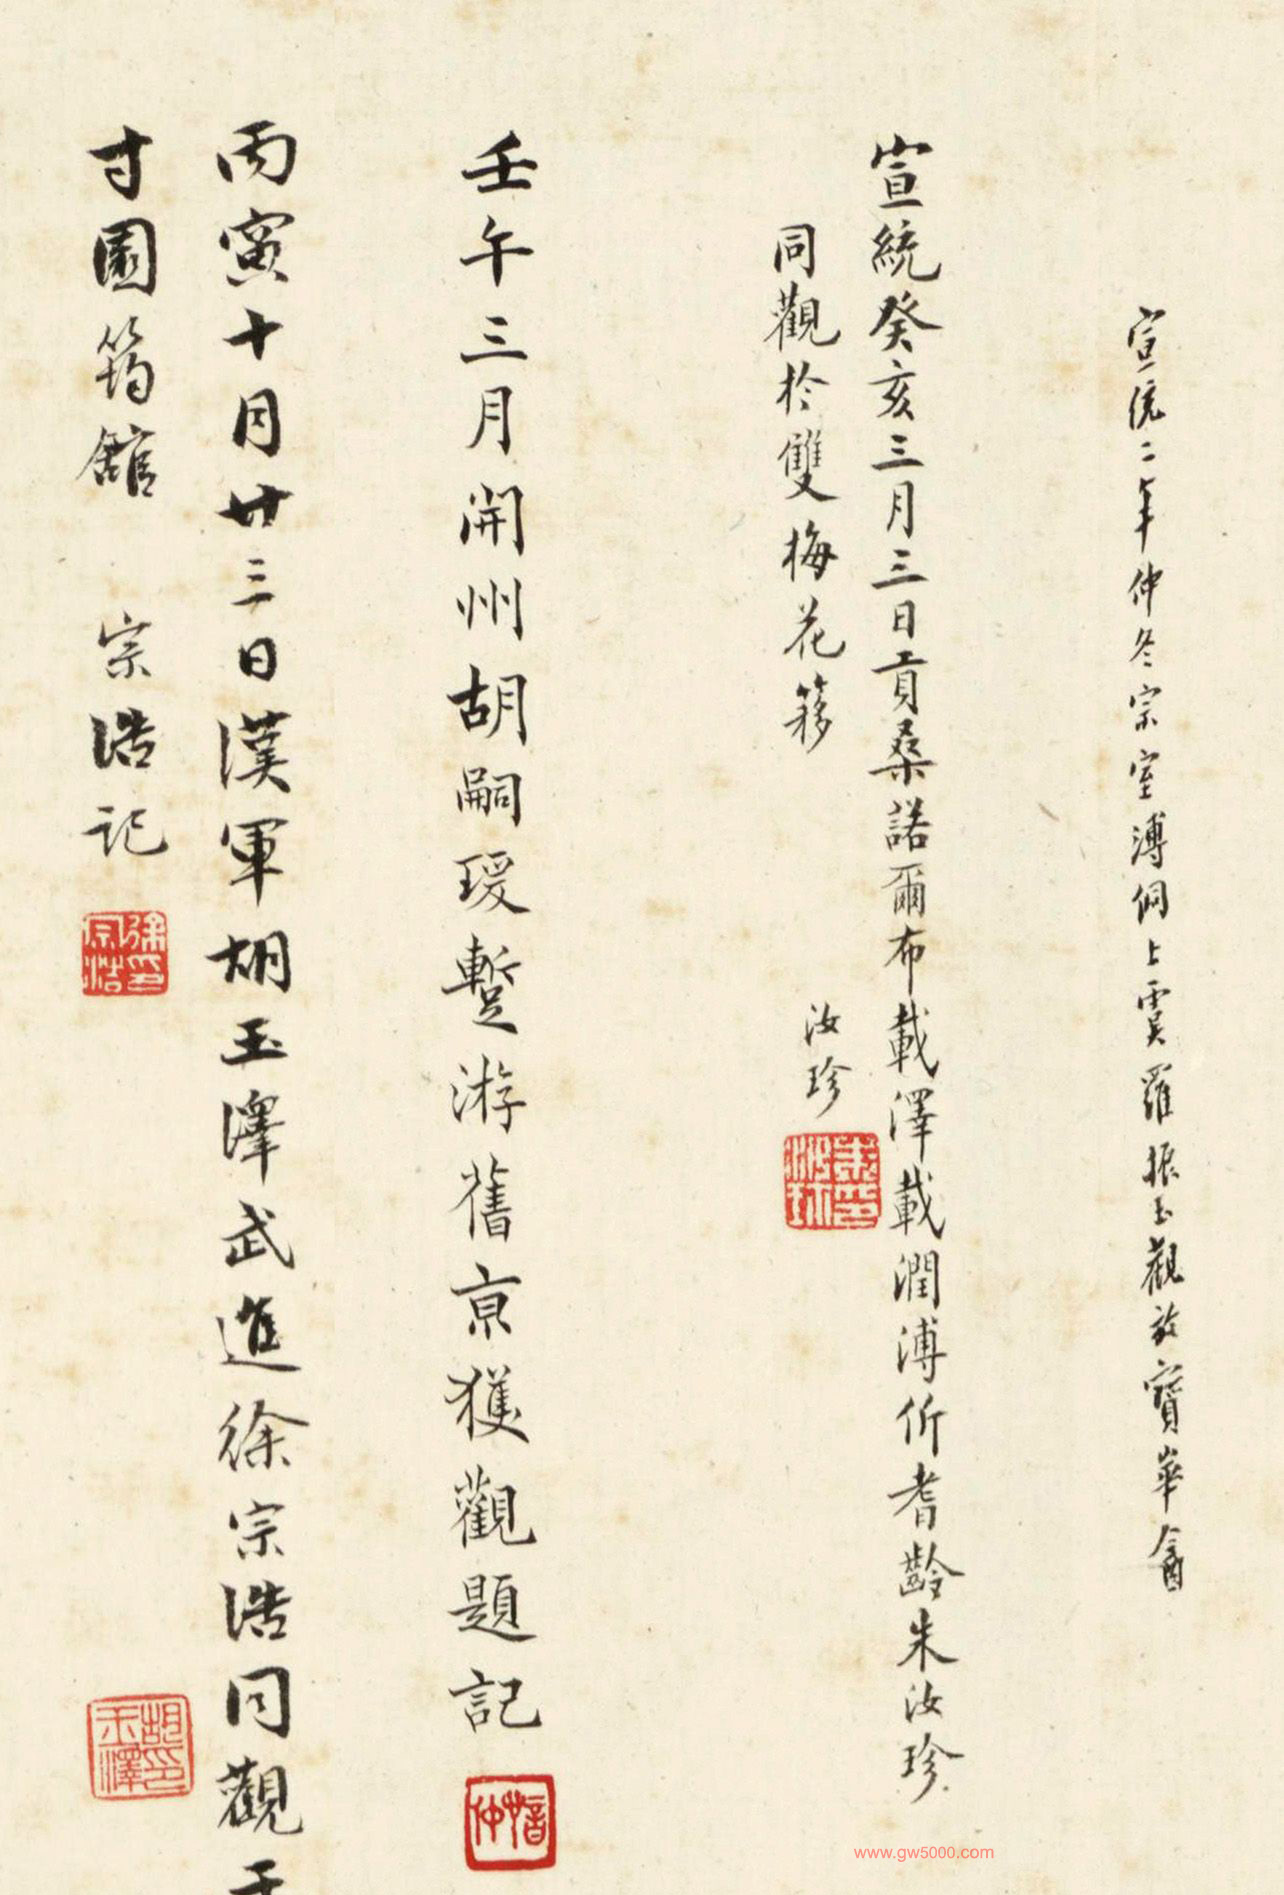 宣統二年仲冬宗室溥侗上虞羅振玉觀於寶華盦
宣統癸亥三月三日貢桑諾爾布載澤載潤溥伒耆齡朱汝珍
同觀於雙梅花簃
汝珍
朱汝珍印
壬午三月開州胡嗣瑗蹔游舊京獲觀題記
愔仲
丙寅十月廿三日漢軍胡玉澤武進徐宗浩同觀于
寸園筠館 宗浩記
徐宗浩印
胡玉澤印
www.gw5000.com